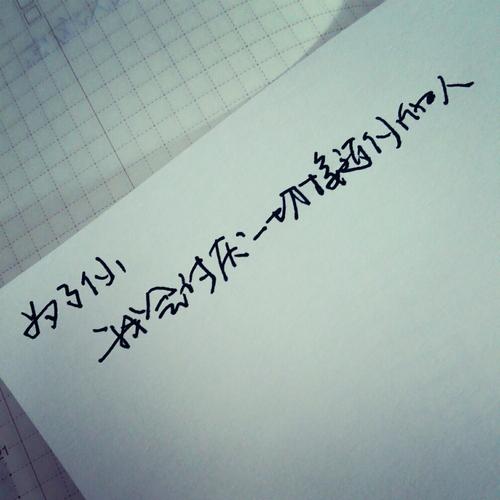 为了你,
我会讨厌一切接近你的人